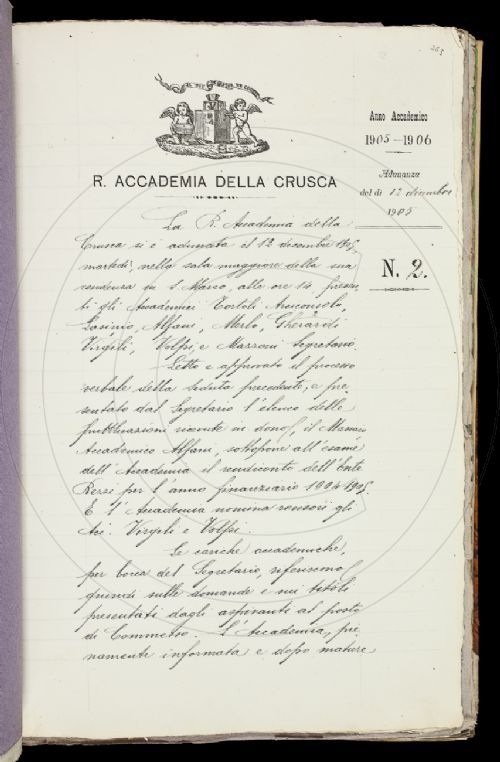 263
Anno Accademico
1905-1906
Adunanza
del dì 12 dicembre
1905
N. 2.
R. ACCADEMIA DELLA CRUSCA
La R. Accademia della
Crusca si è adunata il 12 decembre 1905,
martedì, nella sala maggiore della sua
residenza in S. Marco, alle ore 14 presen-
ti gli Accademici Tortoli Arciconsolo,
Lasinio, Alfani, Merlo, Gherardi
Virgili, Volpi e Mazzoni Segretario.
Letto e approvato il processo
verbale della seduta precedente, e pre
sentato dal Segretario l'elenco delle
pubblicazioni ricevute in dono, il Massaio
Accademico Alfani, sottopone all'esame
dell'Accademia il rendiconto dell'Ente
Rezzi per l'anno finanziario 1904-1905.
E l'Accademia nomina revisori gli
Aci. Virgili e Volpi.
Le cariche accademiche,
per bocca del Segretario, riferiscono
quindi sulle domande e sui titoli
presentati dagli aspiranti al posto
di Commesso. L'Accademia, pie-
namente informata e dopo mature